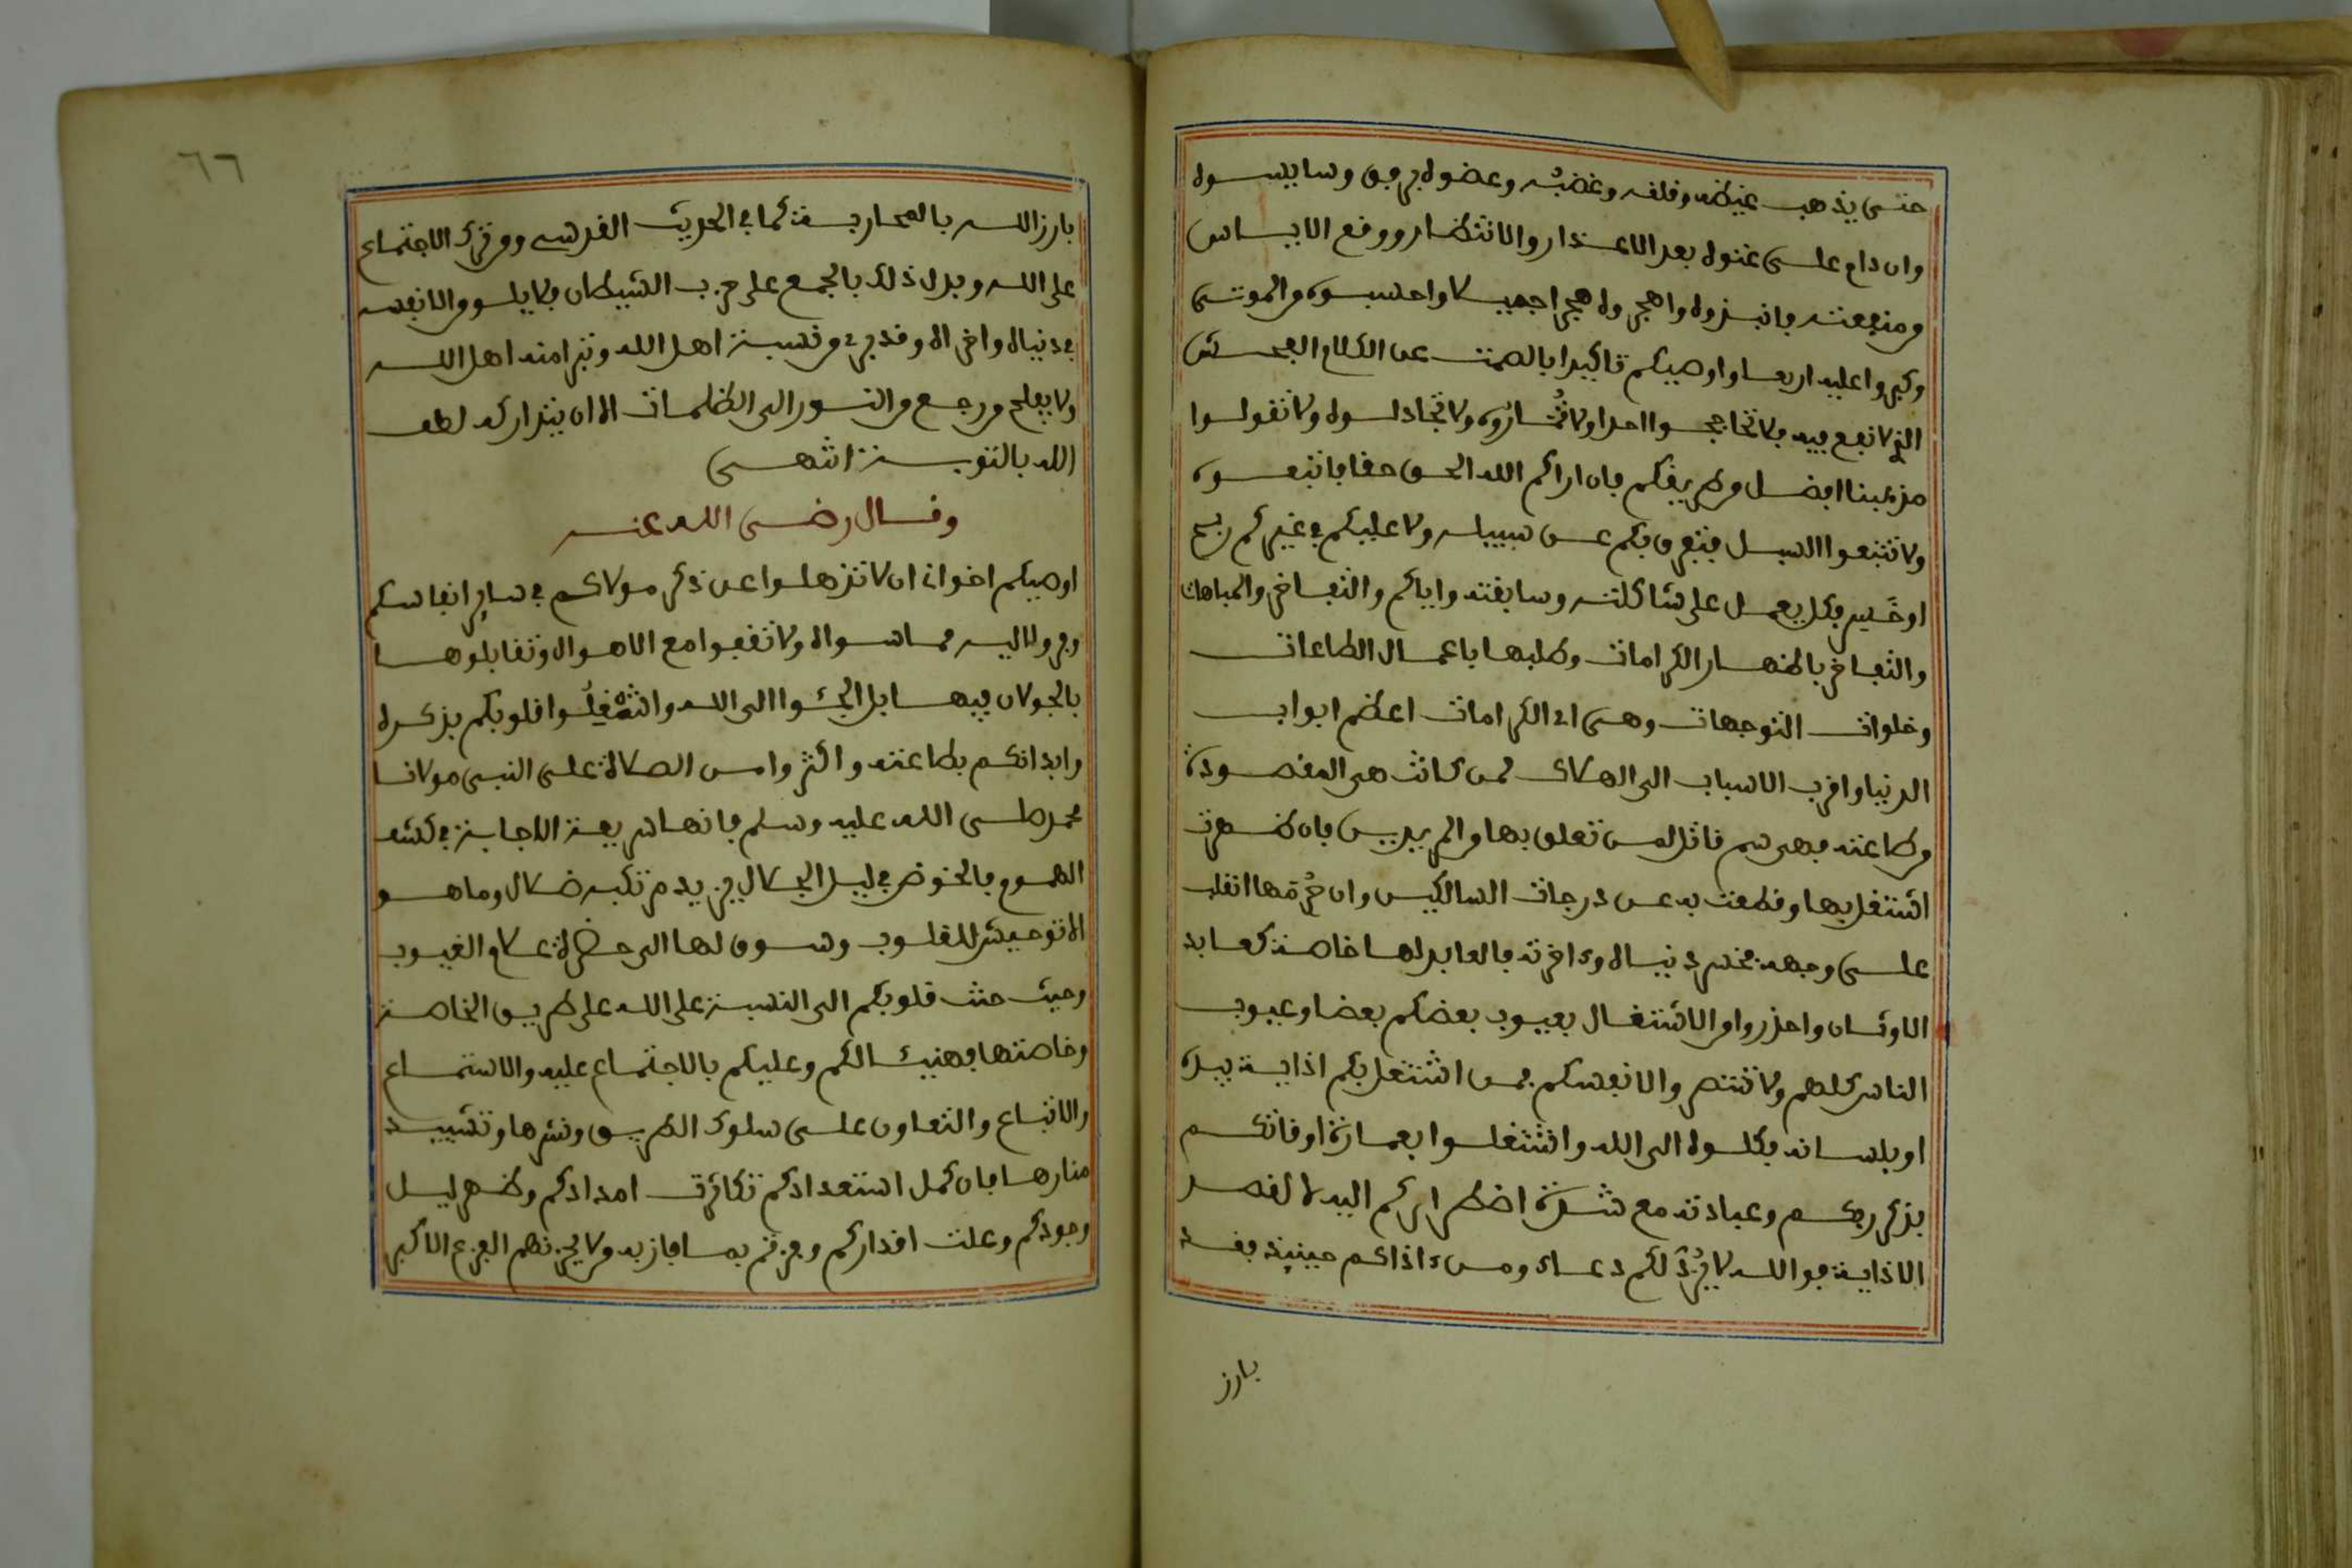 حتى يذهب غيظه وقلقه وغضبه وعضوه برفق وسايسوه
وان دام على عتوه بعد الاعتذار والانتظار ووقع الاياس
من نفعته فانبذوه واهجروه هجرا جميلا واحسبوه من الموتى
وكبروا عليه اربعا واوصيكم تاكيدا بالصمت عن الكلام الفحش
الذي لا نفع فيه فلا تحاججوا احدا ولا تماروه ولا تجادلوه ولا تقولوا
مذهبنا افضل من طريقكم فان اراكم الله الحق حقا فاتبعوه
ولا تتبعوا السبل فتفرق بكم عن سبيله ولا عليكم في غيركم ربح
او خسر فكل يعمل على شاكلته وسابقته واياكم والتفاخر والمباهات
والتفاخر باظهار الكرامات وطلبها باعمال الطاعات
وخلوات التوجهات وهي اي الكرامات اعظم ابواب
الدنيا واقرب الاسباب الى الهلاك لمن كانت هي المقصودة
من طاعته فهي سم قاتل لمن تعلق بها من المريدين فان ظهرت
اشتغل بها وقطعت به عن درجات السالكين وان حرمها انقلب
على وجهه خسر دنياه وءاخرته فالعابد لها خاصة كعابد
الاوثان واحذروا من الاشتغال بعيوب بعضكم بعضا وعيوب
الناس كلهم ولا تنتصروا لانفسكم فمن اشتغل بكم اذاية بيده
او بلسانه فكلوه الى الله واشتغلوا بعمارة اوقاتكم
بذكر ربكم وعبادته مع شدة اضطراركم اليه لا لقصد
الاذاية فوالله لا يرد لكم دعاء ومن ءاذاكم حينيذ فقد
بارز
٦٦
بارز الله بالمحاربة كما في الحديث القدسي ومن ترك الاجتماع
على الله وبدل ذلك بالجمع على حزب الشيطان فلا يلومن الا نفسه
في دنياه واخراه وقد برئ من نسبة اهل الله وتبرا منه اهل الله
ولا يفلح من رجع من النور الى الظلمات الا ان يتداركه لطف
الله بالتوبة انتهى
وقال رضى الله عنه
اوصيكم اخواني ان لا تذهلوا عن ذكر مولاكم في ساير انفاسكم
وفروا اليه مما سواه ولا تقفوا مع الاهوال وتقابلوها
بالجولان فيها بل الجئوا الى الله واشغلوا قلوبكم بذكره
وابدانكم بطاعته واكثروا من الصلاة على النبي مولانا
محمد صلى الله عليه وسلم فانها سريعة الاجابة في كشف
الهموم فالخوض في ليل الجلال يزيده من تكبه ضلال وما هو
الا توحيش للقلوب وسوق لها الى حضرة علام الغيوب
وحيث حنت قلوبكم الى النسبة على الله على طريق الخاصة
وخاصتها فهنيئا لكم وعليكم بالاجتماع عليه والاستماع
والاتباع والتعاون على سلوك الطريق ونشرها وتشييد
منارها فان كمل استعدادكم تكاثرت امدادكم وظهر ليل
وجودكم وعلت اقداركم وفزتم بما فاز به من لا يحزنهم الفزع الاكبر